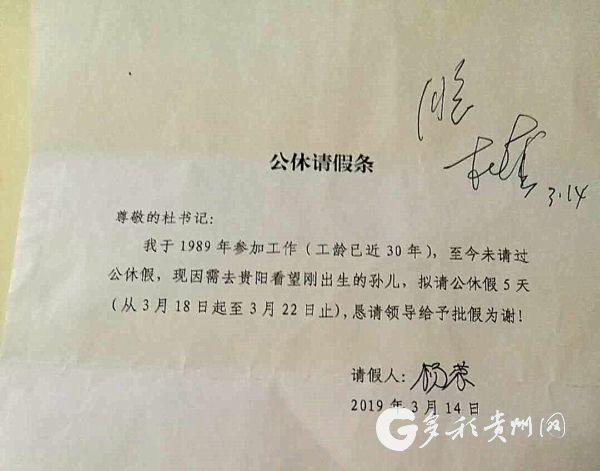 同意
3.14
公休请假条
尊敬的杜书记:
我于 1989 年参加工作（工龄已近 30 年），至今未请过
公休假，现因需去贵阳看望刚出生的孙儿，拟请公休假 5 天
（从 3 月 18 日起至 3 月 22 日止），恳请领导给予批假为谢！
请假人：杨荣
2019 年 3 月 14 日
多彩贵州网